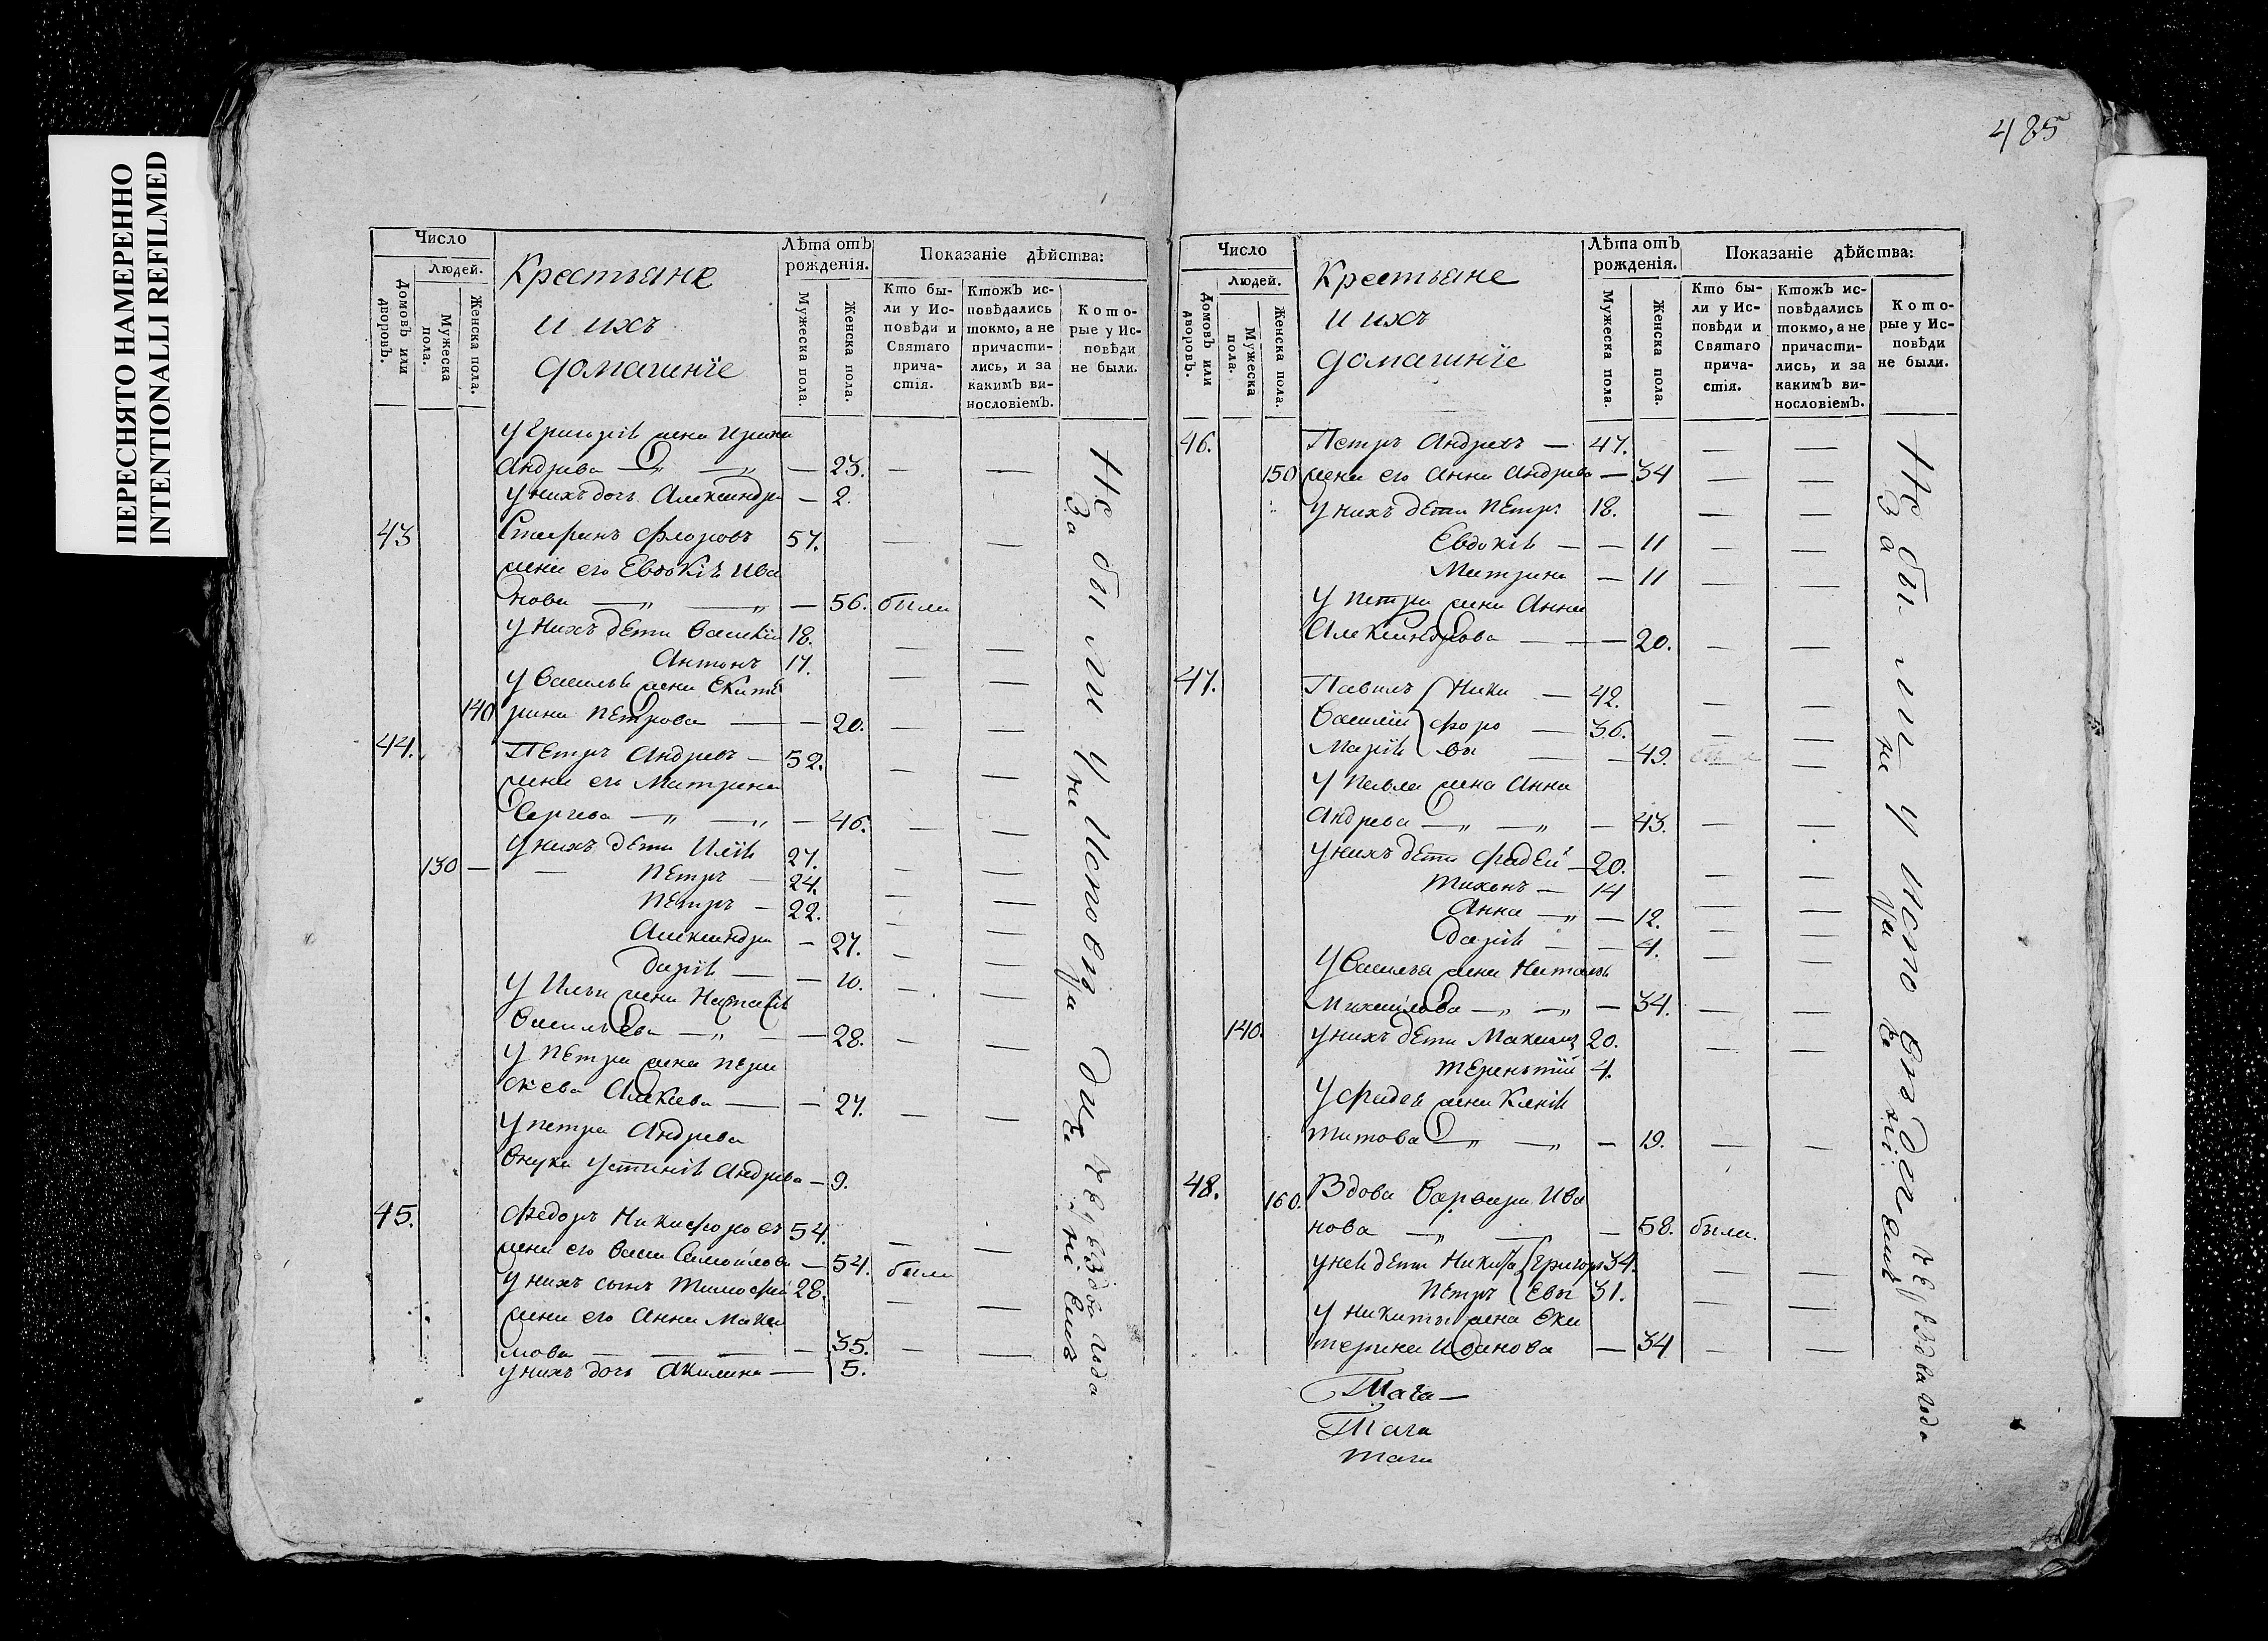 ПЕРЕСНЯТО НАМЕРЕННО
INTENTIONALLI REFILMED
485
Число
Людей.
Домовъ или дворовъ.
Мужеска пола.
Женска пола.
Крестьяне
и ихъ
домашнїе
Лѣта отъ рожденія.
Мужеска пола.
Женска пола.
Показаніе дѣйства:
Кто были у Исповѣди и Святаго причастія.
Ктожъ исповѣдались токмо, а не причастились, и за какимъ винословіемъ.
Которые у Исповѣди не были.
У Григорїѣ жена Ирина
Андрева —„ —„ — 23. — —
у нихъ дочь Александра — 2.
43 Стефанъ Флоровъ 57. — —
жена его Евдокїѣ Ива
нова —„ —„ — 56. были
у нихъ дети Василїй 18. — —
Антонъ 17. — —
у Василья жена Екате
140 рина Петрова — — 20. — —
44. Петръ Андревъ — 52. — —
жена его Матрена
Сергева —„ —„ — 46. — —
у нихъ дети Илїѣ 27. — —
130 — — Петръ — 24. — —
Петръ — 22. — —
Александра — 27. — —
Дарїѣ — — 10. — —
У Ильи жена Наталїѣ
Васильева —„ — — 28. — —
у Петра жена Пера
скева Алексева — — 27. — —
у Петра Андрева
внука Устинїѣ Андрева — 9.
45. Федоръ Никифоровъ 54. — —
жена его Васа Самойлова — 54. были
у нихъ сынъ Тимофей 28. — —
жена его Анна Макси
мова — — — — 35. — —
у нихъ дочь Акилина — 5.
Не были у исповеди
За
Число
Людей.
Домовъ или дворовъ.
Мужеска пола.
Женска пола.
Крестьяне
и ихъ
домашнїе
Лѣта отъ рожденія.
Мужеска пола.
Женска пола.
Показаніе дѣйства:
Кто были у Исповѣди и Святаго причастія.
Ктожъ исповѣдались токмо, а не причастились, и за какимъ винословіемъ.
Которые у Исповѣди не были.
46. Петръ Андревъ — 47. — —
150 жена его Анна Андрева — 34 — —
у нихъ дети Петръ 18. — —
Евдокїѣ — — 11 — —
Матрена — 11 — —
у Петра жена Анна
Александрова — — — 20. — —
47. Павилъ Ники — 42. — —
Василїй форо — 36. — —
Марїѣ вы — — 49. —
у Павла жена Анна
Андрева —„ —„ — 43. — —
у нихъ дети Фадей — 20. — —
Тихонъ — 14 — —
Анна —„ — 12. — —
Дарїѣ — — 4. — —
у Василья жена Наталья
Михайлова —„ —„ — 34. — —
140. у нихъ дети Максимъ 20. — —
Терентий 4.
У Фадея жена Ксенїѣ
Титова —„ —„ — 19. — —
48. 160. Вдова Варвара Ива
нова —„ — — 58. были.
у ней дети Никита Григорь 34. — —
Петръ Евы 31. — —
у Никиты жена Ека
терина Иванова — 34 — —
Не были у исповеди
За
Тага —
Тага
тага